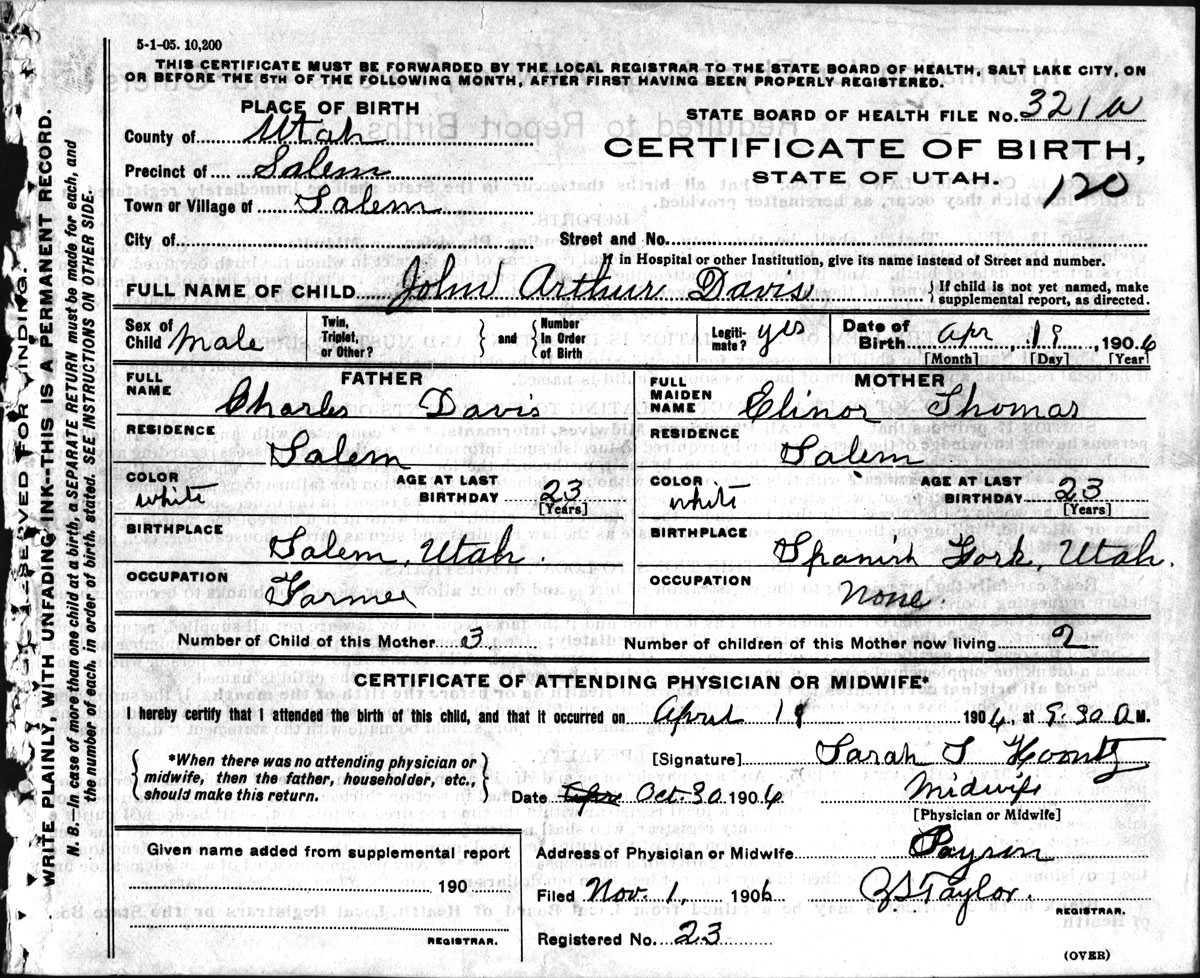 5-1-05. 10,200
THIS CERTIFICATE MUST BE FORWARDED BY THE LOCAL REGISTRAR TO THE STATE BOARD OF HEALTH, SALT LAKE CITY, ON
OR BEFORE THE 5TH OF THE FOLLOWING MONTH, AFTER FIRST HAVING BEEN PROPERLY REGISTERED.
PLACE OF BIRTH
STATE BOARD OF HEALTH FILE No. 321a
County of Utah
CERTIFICATE OF BIRTH,
Precinct of Salem
STATE OF UTAH. 120
Town or Village of Salem
City of Street and No.
If in Hospital or other Institution, give its name instead of Street and number.
FULL NAME OF CHILD John Arthur Davis { If child is not yet named, make
supplemental report, as directed.
Sex of Child Male
Twin, Triplet, or Other? } and { Number In Order of Birth
Legiti-mate? yes
Date of Birth Apr 19 1906
[Month] [Day] [Year]
FATHER
FULL NAME Charles Davis
MOTHER
FULL MAIDEN NAME Elinor Thomas
RESIDENCE Salem
RESIDENCE Salem
COLOR white AGE AT LAST BIRTHDAY 23 [Years]
COLOR white AGE AT LAST BIRTHDAY 23 [Years]
BIRTHPLACE Salem, Utah.
BIRTHPLACE Spanish Fork, Utah.
OCCUPATION Farmer
OCCUPATION None.
Number of Child of this Mother 3 Number of children of this Mother now living 2
CERTIFICATE OF ATTENDING PHYSICIAN OR MIDWIFE*
I hereby certify that I attended the birth of this child, and that it occurred on April 19 1906, at 30 A M.
{ *When there was no attending physician or
midwife, then the father, householder, etc.,
should make this return. }
[Signature] Sarah Koontz
Date Oct. 30 1906 Midwife
[Physician or Midwife]
Given name added from supplemental report
190
REGISTRAR.
Address of Physician or Midwife Payson
Filed Nov. 1, 1906 Taylor.
REGISTRAR.
Registered No. 23
(OVER)
RESERVED FOR BINDING.
WRITE PLAINLY, WITH UNFADING INK--THIS IS A PERMANENT RECORD.
N. B. In case of more than one child at a birth, a SEPARATE RETURN must be made for each, and
the number of each, in order of birth, stated. SEE INSTRUCTIONS ON OTHER SIDE.